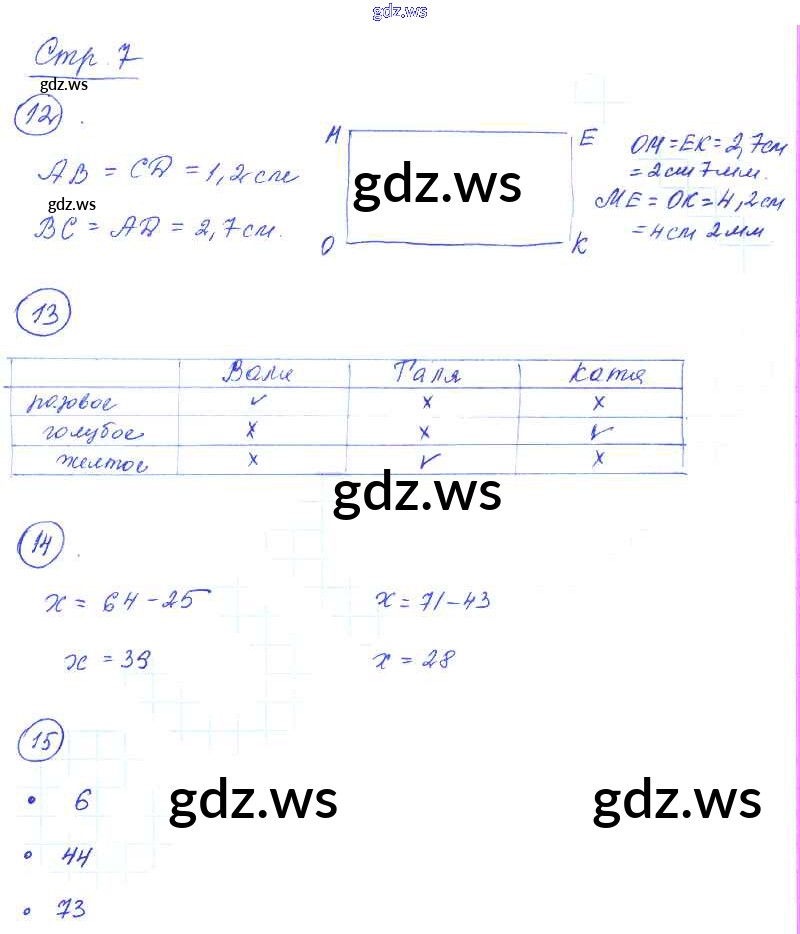 gdz.ws
Стр. 7
gdz.ws
12.
AB = CD = 1,2 см
gdz.ws
BC = AD = 2,7 см.
M E
gdz.ws
O K
OM = EK = 2,7 см
= 2 см 7 мм.
ME = OK = 4,2 см
= 4 см 2 мм
13
Валя Галя Катя
розовое ✓ x x
голубое x x ✓
желтое x ✓ x
gdz.ws
14.
x = 64 - 25 x = 71 - 43
x = 39 x = 28
15
• 6
gdz.ws gdz.ws
• 44
• 73